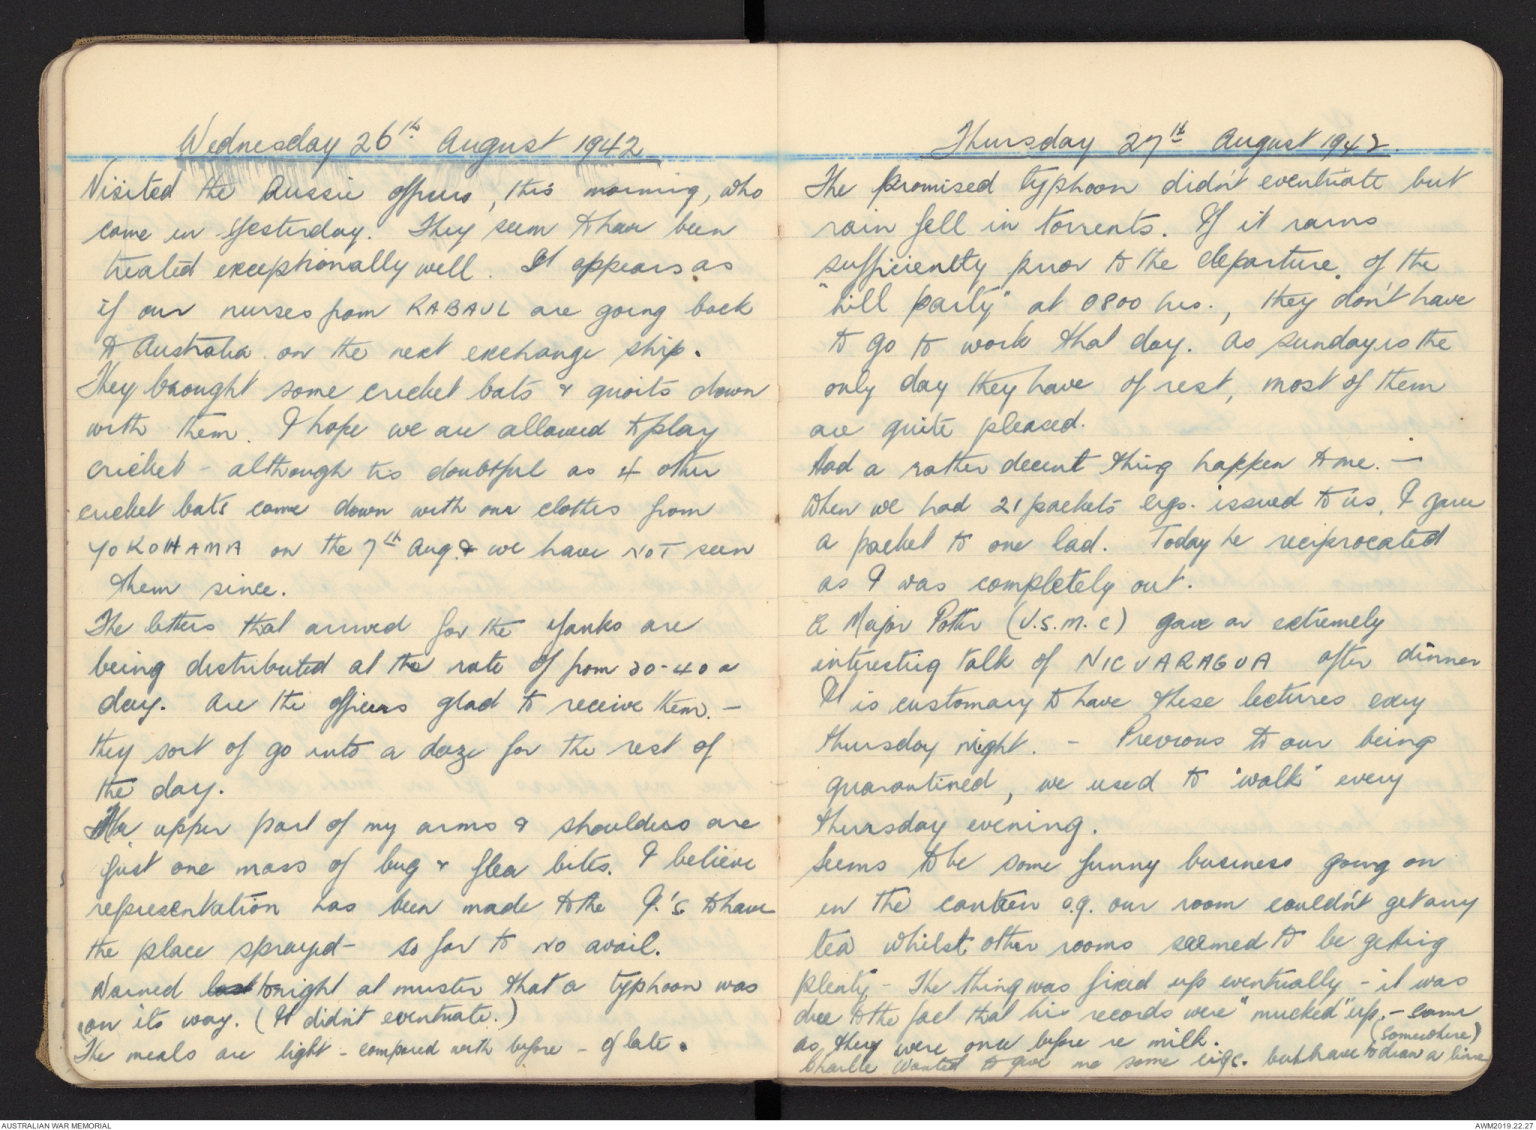 Wednesday 26th August 1942
Visited the Aussie officers, this morning, who
came in yesterday. They seem to have been
treated exceptionally well. It appears as
if our nurses from RABAUL are going back
to Australia on the next exchange ship.
They brought some cricket bats & quoits down
with them. I hope we are allowed to play
cricket - although tis doubtful as 4 other
cricket bats came down with our clothes from
YOKOHAMA on the 7th Aug. & we have NOT seen
them since.
The letters that arrived for the Yanks are
being distributed at the rate of from 30-40 a
day. Are the officers glad to receive them. -
they sort of go into a daze for the rest of
the day.
The upper part of my arms & shoulders are
just one mass of bug & flea bites. I believe
representation has been made to the J.'s to have
the place sprayed - so far to NO avail.
Warned last tonight at muster that a typhoon was
on its way. (It didn't eventuate.)
The meals are light - compared with before - of late.
Thursday 27th August 1942.
The promised typhoon didn't eventuate but
rain fell in torrents. If it rains
sufficiently prior to the departure of the
"hill party" at 0800 hrs., they don't have
to go to work that day. As Sunday is the
only day they have of rest, most of them
are quite pleased.
Had a rather decent thing happen to me. -
When we had 21 packets cigs. issued to us, I gave
a packet to one lad. Today he reciprocated
as I was completely out.
A Major Potter (U.S.M.C) gave an extremely
interesting talk of NICUARAGUA after dinner
It is customary to have these lectures every
thursday night. - Previous to our being
quarantined, we used to "walk" every
thursday evening.
Seems to be some funny business going on
in the canteen e.g. our room couldn't get any
tea whilst other rooms seemed to be getting
plenty - The thing was fixed up eventually - it was
due to the fact that his records were "mucked" up. - same
as they were once before re milk. (somewhere)
Charlie wanted to give me some cigs. but have to draw a line
AUSTRALIAN WAR MEMORIAL
AWM2019.22.27